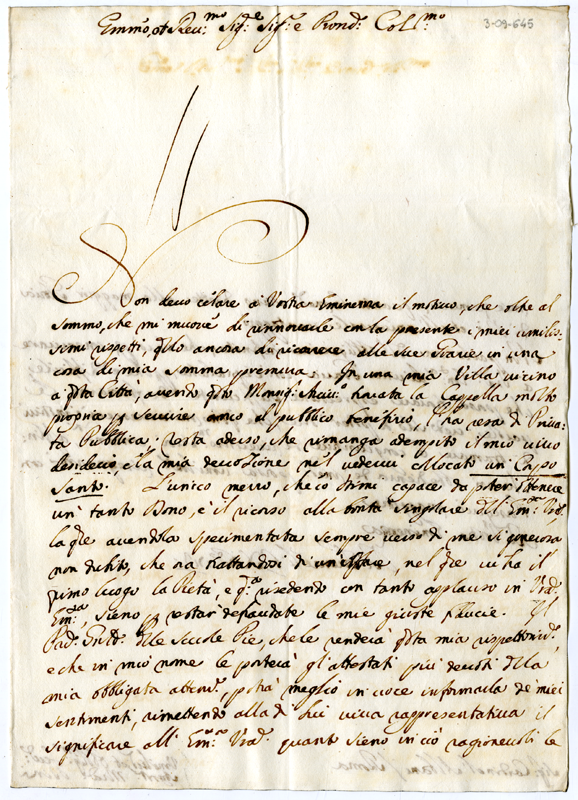 Emmo, et Reu.mo Sig.e Sig.e e Pron.e Col.mo
3-09-645
Non deuo celare à Vostra Eminenza il motiuo, che oltre al
sommo, che mi muoue di rinnouarle con la presente i miei umilis-
semi rispetti, hò ancora di ricorrere alle sue Grazie in una
cosa di mia somma premura. In una mia Villa vicino
à qta Città, auendo qto Monsig.r trouata la Cappella molto
propria p seruire anco al pubblico benefizio, l'ha resa di Priua-
ta Pubblica. Resta adesso, che rimanga adempito il mio viuo
desiderio, e la mia deuozione nel vederui collocato un Corpo
Santo. L'unico mezzo, che io stimi capace da poter ottenere
un tanto Dono, è il ricorso alla bontà singolare dell' Em.a Vra,
la qle auendola sperimentata sempre verso di me sì generosa
non dubito, che ora trattandosi di un affare, nel qle vi ha il
primo luogo la Pietà, e qta risedendo con tanto applauso in Vra
Em.a, sieno p restar defraudate le mie giuste fiducie. Il
Pad. delle Scuole Pie, che le renderà qta mia rispettosa,
e che in mio nome le porterà gl'attestati più deuoti della
mia obbligata attenz., potrà meglio in uoce informarla de miei
sentimenti, rimettendo alla di lui viua rappresentatiua il
significare all' Em.a Vra quanto sieno in ciò ragioneuoli le